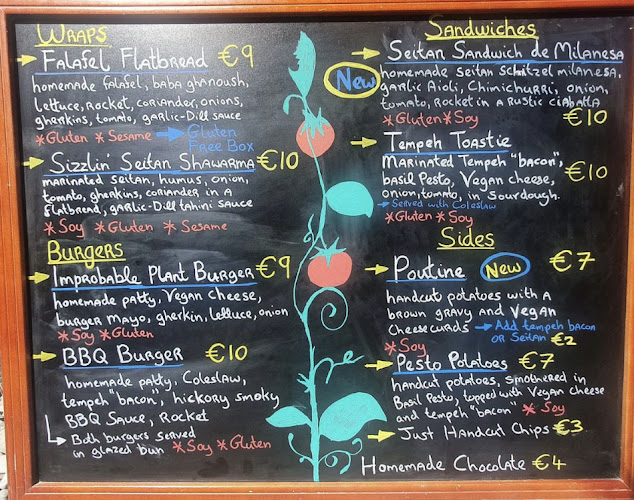 WRAPS
Falafel Flatbread €9
homemade falafel, baba ghanoush,
lettuce, rocket, coriander, onions,
gherkins, tomato, garlic-Dill sauce
* Gluten * Sesame → Gluten
Free Box
Sizzlin' Seitan Shawarma €10
marinated seitan, humus, onion,
tomato, gherkins, coriander in a
flatbread, garlic-Dill tahini sauce
* Soy * Gluten * Sesame
BURGERS
Improbable Plant Burger €9
homemade patty, Vegan Cheese,
burger mayo, gherkin, lettuce, onion
* Soy * Gluten
BBQ Burger €10
homemade patty, Coleslaw,
tempeh "bacon", hickory smoky
BBQ Sauce, Rocket
Both burgers served
in glazed bun * Soy * Gluten
Sandwiches
New
Seitan Sandwich de Milanesa
homemade seitan schnitzel milanesa,
garlic Aioli, Chimichurri, onion,
tomato, Rocket in a Rustic ciabatta
* Gluten * Soy €10
Tempeh Toastie
Marinated Tempeh "bacon", €10
basil Pesto, Vegan cheese,
onion, tomato, in Sourdough.
→ Served with Coleslaw
* Gluten * Soy
Sides
Poutine New €7
handcut potatoes with a
brown gravy and Vegan
Cheesecurds → Add tempeh bacon
or Seitan €2
* Soy
Pesto Potatoes €7
handcut potatoes, smothered in
Basil Pesto, topped with Vegan Cheese
and tempeh "bacon" * Soy
Just Handcut Chips €3
Homemade Chocolate €4